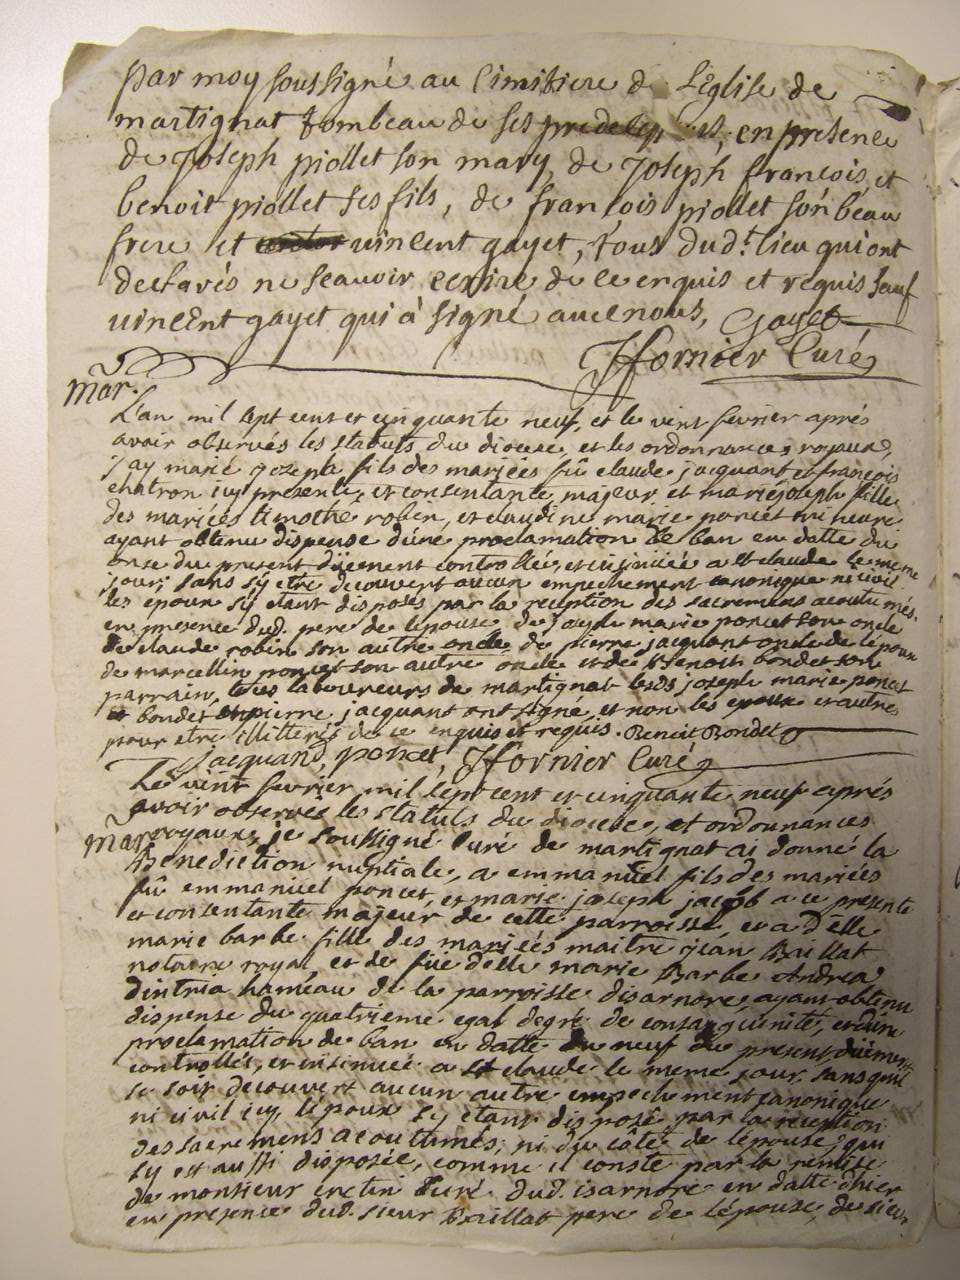 par moy soussigné au Cimitiere de L'Eglise de
martignat tombeau de ses predecess, en presence
de Joseph piollet son mary, de Joseph francois, et
benoit piollet ses fils, de francois piollet son beau
frere et vincent gayet, tous dud.t lieu qui ont
declarés ne scavoir ecrire de ce enquis et requis sauf
vincent gayet qui à signé avec nous, Gayet
JJfornier Curé
mar.
L'an mil sept cent et cinquante neuf, et le vint fevrier aprés
avoir observés les statuts du diocese, et les ordonnances royaux,
j'ay marié jozeph fils des mariées fû claude jacquant et francois
chatron icy presente, et consentante, majeur et marie joseph fille
des mariées timothé robin, et claudine marie poncet mineure
ayant obtenu dispense d'une proclamation de ban en datte du
onze du present düement controllée, et insinuée a st claude le meme
jour; sans s'y etre decouvert aucun empechement canonique ni civil
les epoux s'y etant disposés par la reception des sacremens acoutumés.
en presence dud. pere de l'epouse de joseph marie poncet son oncle
de claude robin son autre oncle de pierre jacquant oncle de l'epoux
de marcellin poncet son autre oncle et de benoit bondet son
parrain, tous laboureurs de martignat lesds joseph marie poncet
et bondet et pierre jacquant ont signé, et non les epoux et autres
pour etre illiteres de ce enquis et requis. Benoit Bondet
Jacquand, poncet, JJfornier Curé
Le vint fevrier mil sept cent et cinquante neuf aprés
avoir observés les statuts du diocese, et ordonnances
mar. royaux, je soussigné Curé de martignat ai donné la
Benediction nuptiale, a emmanuel fils des mariées
fû emmanuel poncet, et marie joseph jacob a ce presente
et consentante majeur de cette parroisse, et a d'elle
marie barbe fille des mariées maitre jean Baillat
notaire royal, et de fûe d'elle marie Barbe Andrea
d'intria hameau de la parroisse d'isarnore, ayant obtenu
dispense du quatrieme egal degré de consanguinité, et d'une
proclamation de ban en datte du neuf du present düement
controllée, et insinuée a st claude le meme jour. sans qu'il
se soit decouvert aucun autre empechement canonique
ni civil icy, l'epoux s'y etant disposé par la reception
des sacremens acoutumés; ni du côté de l'epouse, qui
s'y est aussi disposée, comme il conste par la remise
de monsieur cretin Curé dud. isarnore en datte d'hier
en presence dud. sieur Baillat pere de l'epouse, de sieur